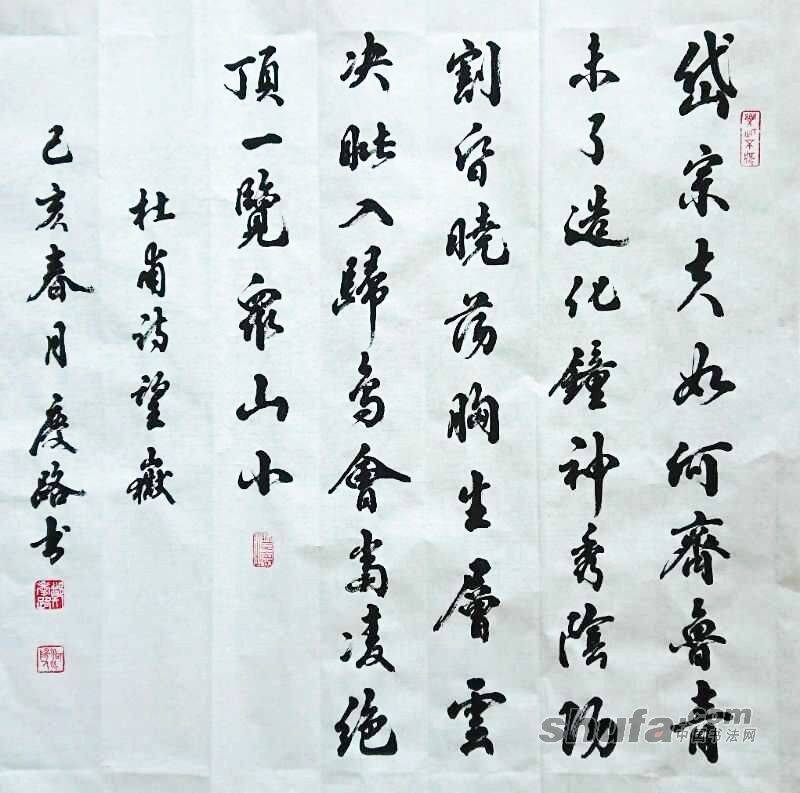 岱宗夫如何齊魯青
未了造化鐘神秀陰陽
割昏曉荡胸生層雲
決眥入歸鳥會當凌絕
頂一覽眾山小
杜甫诗望嶽
己亥春月慶路书
shufa.com
中国书法网